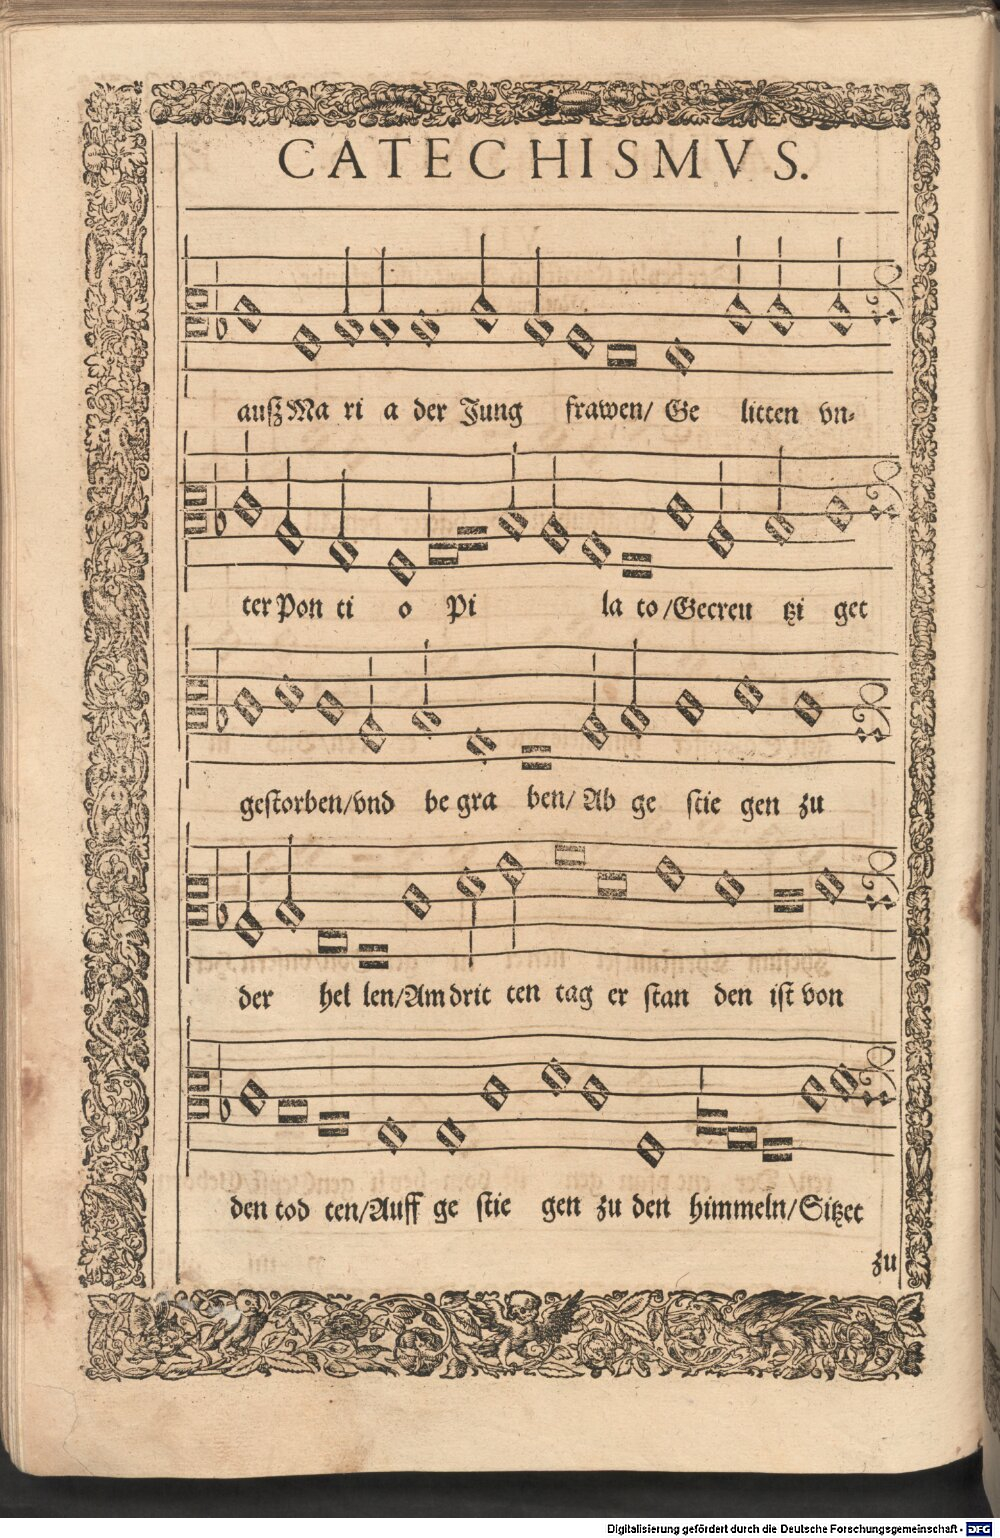 CATECHISMVS.
auß Ma ri a der Jung frawen/ Ge litten vn-
ter Pon ti o Pi la to/Gecreu tzi get
gestorben/vnd be gra ben/ Ab ge stie gen zu
der hel len/Am drit ten tag er stan den ist von
den tod ten/Auff ge stie gen zu den himmeln/Sitzet
zu
Digitalisierung gefördert durch die Deutsche Forschungsgemeinschaft - DFG